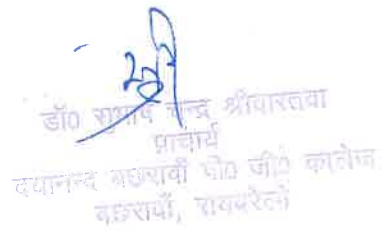 डॉ० सुभाष चन्द्र श्रीवास्तवा
प्राचार्य
दयानन्द बछरावाँ पी० जी० कालेज
बछरावाँ, रायबरेली